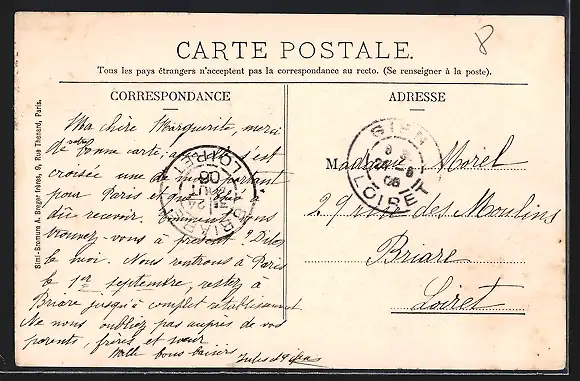 8
CARTE POSTALE.
Tous les pays étrangers n'acceptent pas la correspondance au recto. (Se renseigner à la poste).
CORRESPONDANCE
Ma chère Marguerite, merci
de votre bonne carte; s'est
croisée une de partant
pour Paris et que vous
dû recevoir. Comment vous
trouvez-vous à présent? Dites
le moi. Nous rentrons à Paris
le 1er septembre, restez à
Briare jusqu'à complet rétablissement
Ne nous oubliez pas auprès de vos
parents, frères et sœur
Mille bons baisers
ADRESSE
Madame Morel
29 rue des Moulins
Briare
Loiret
GIEN
LOIRET
BRIARE
LOIRET
AOUT
06
Simi-Bromure A. Breger frères, 9, Rue Thénard, Paris.